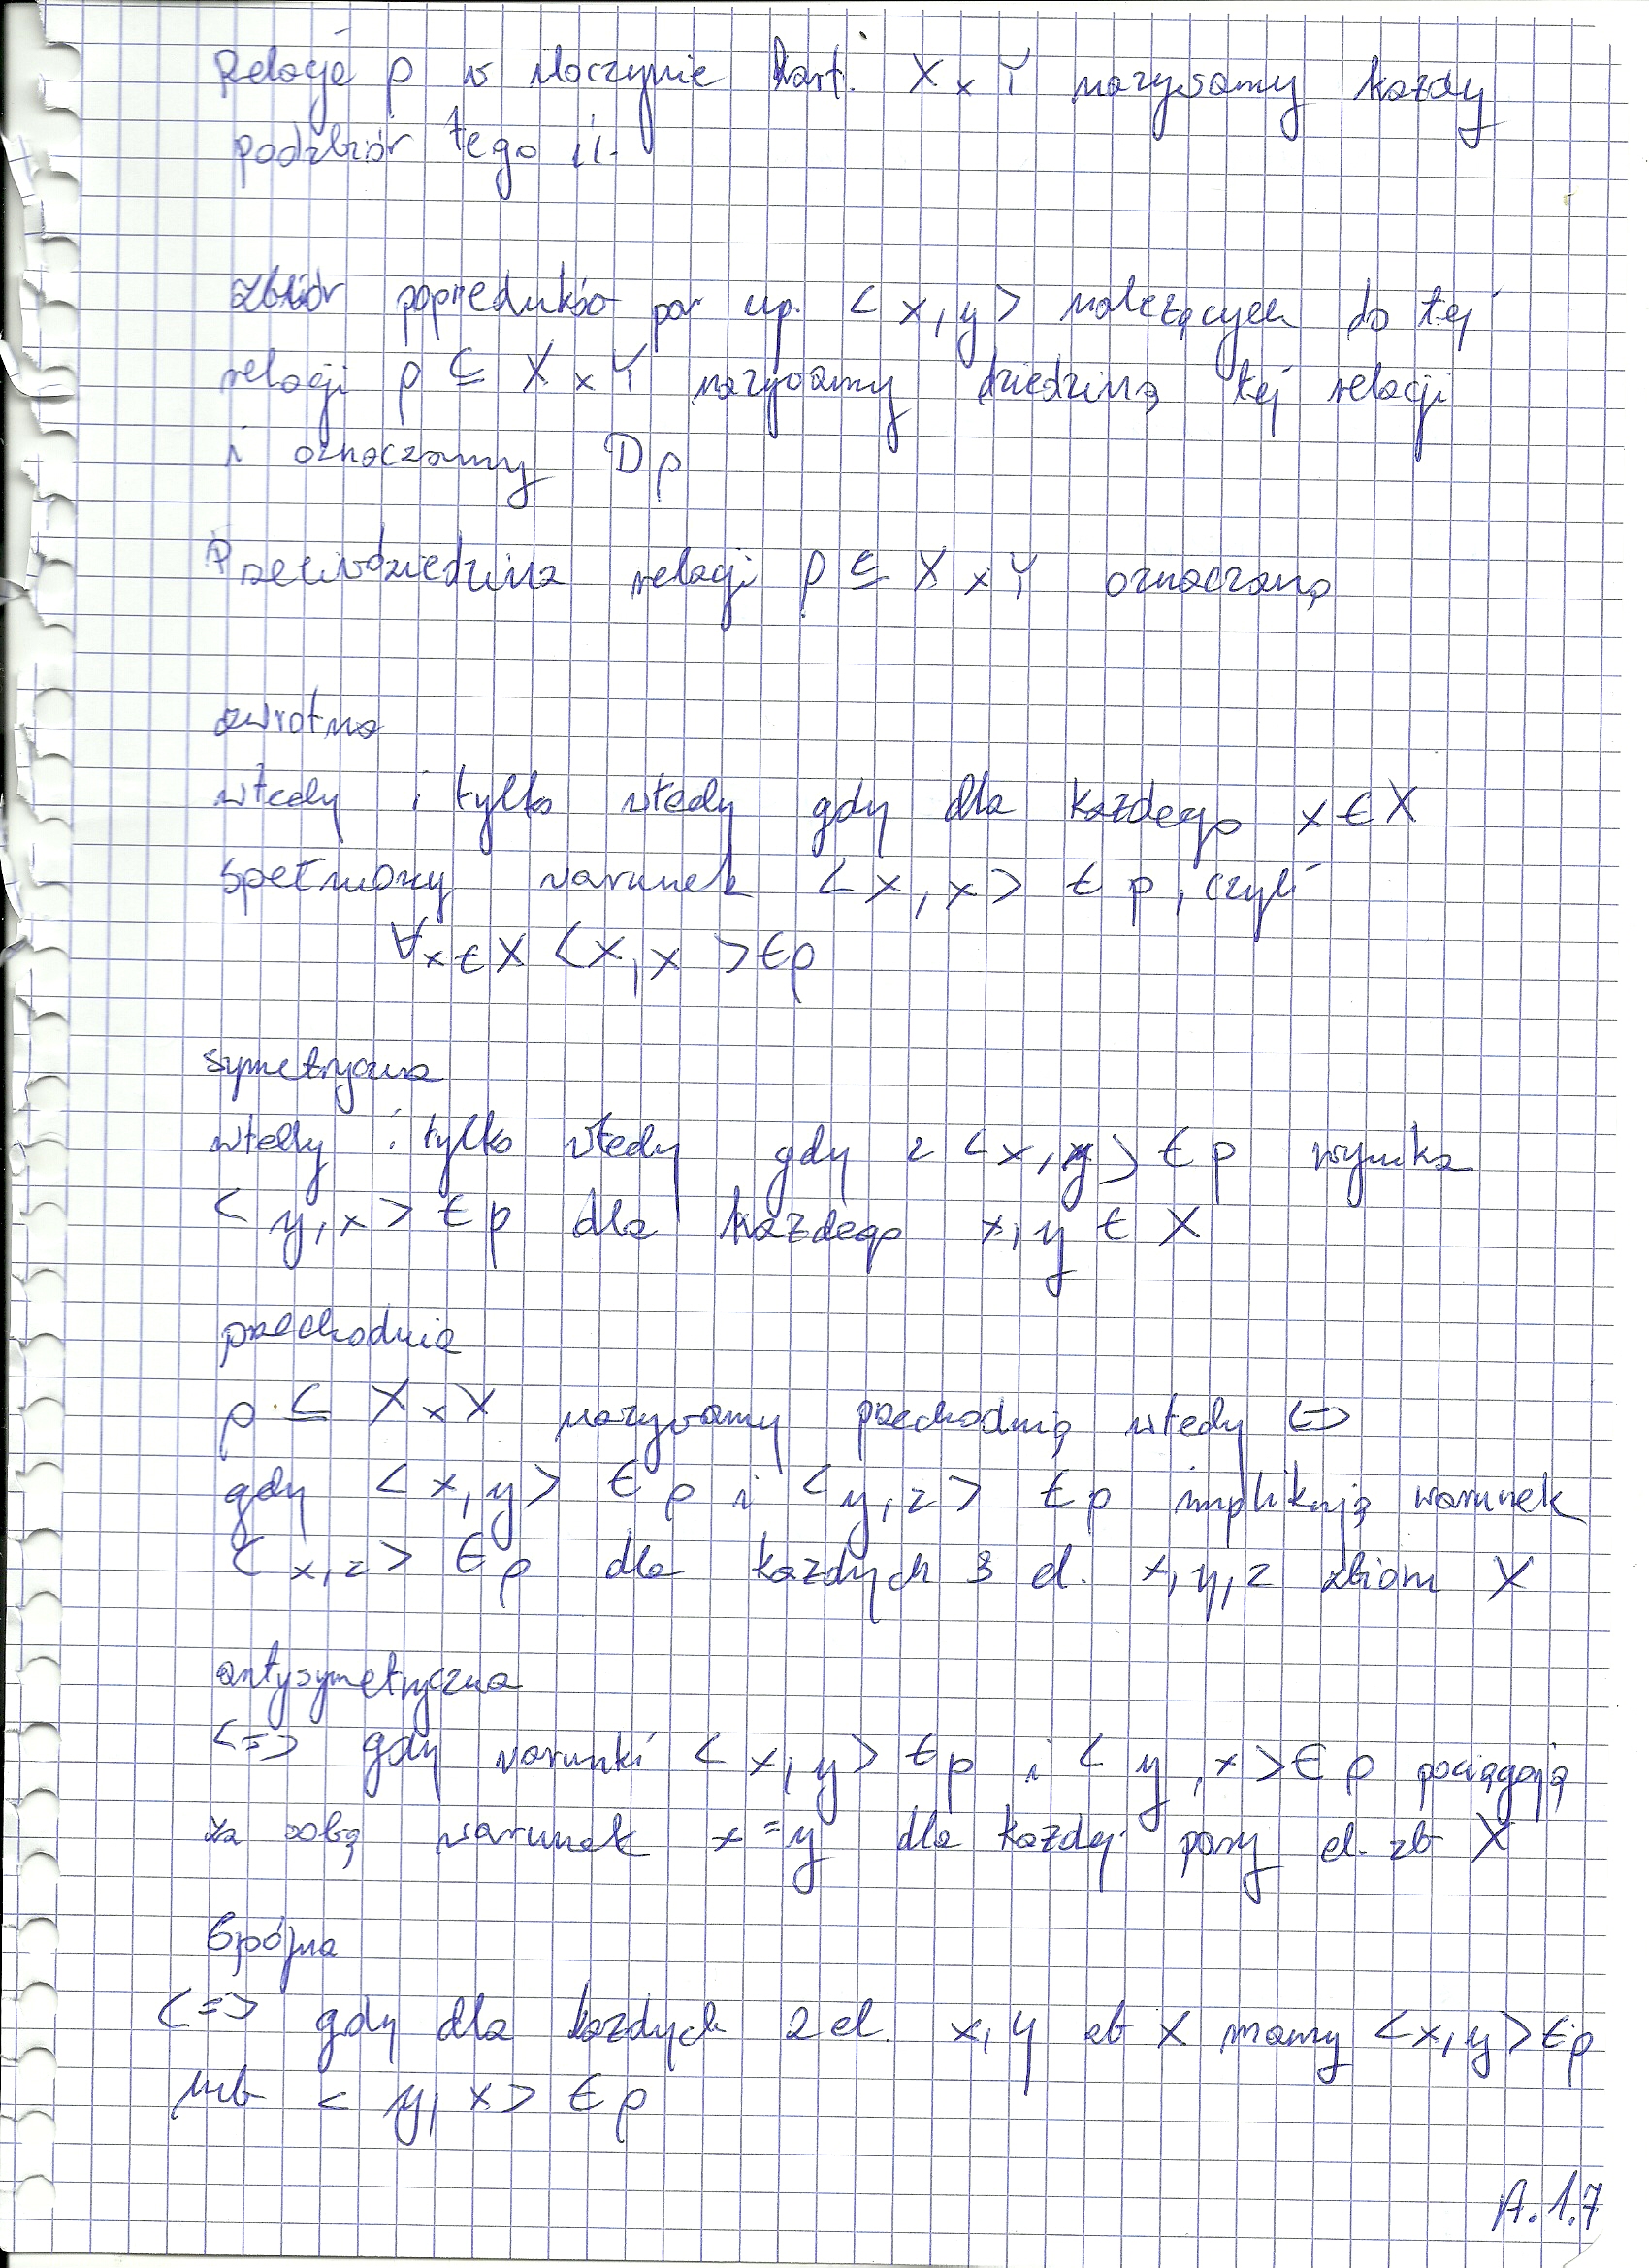 Relację ρ w iloczynie kart. X × Y nazywamy każdy
podzbiór tego il.
zbiór poprzedników par up. <x, y> należących do tej
relacji ρ ⊆ X × Y nazywamy dziedziną tej relacji
i oznaczamy Dρ
Przeciwdziedzina relacji ρ ⊆ X × Y oznaczaną
zwrotna
wtedy i tylko wtedy gdy dla każdego x ∈ X
spełniony warunek <x, x> ∈ ρ, czyli
∀x∈X <x, x> ∈ ρ
symetryczna
wtedy i tylko wtedy gdy z <x, y> ∈ ρ wynika
<y, x> ∈ ρ dla każdego x, y ∈ X
przechodnia
ρ ⊆ X × X nazywamy przechodnią wtedy <=>
gdy <x, y> ∈ ρ i <y, z> ∈ ρ implikują warunek
<x, z> ∈ ρ dla każdych 3 el. x, y, z zbioru X
antysymetryczna
<=> gdy warunki <x, y> ∈ ρ i <y, x> ∈ ρ pociągają
za sobą warunek x = y dla każdej pary el. zb X
Spójna
<=> gdy dla każdych 2 el. x, y zb X mamy <x, y> ∈ ρ
lub <y, x> ∈ ρ
A.1.7